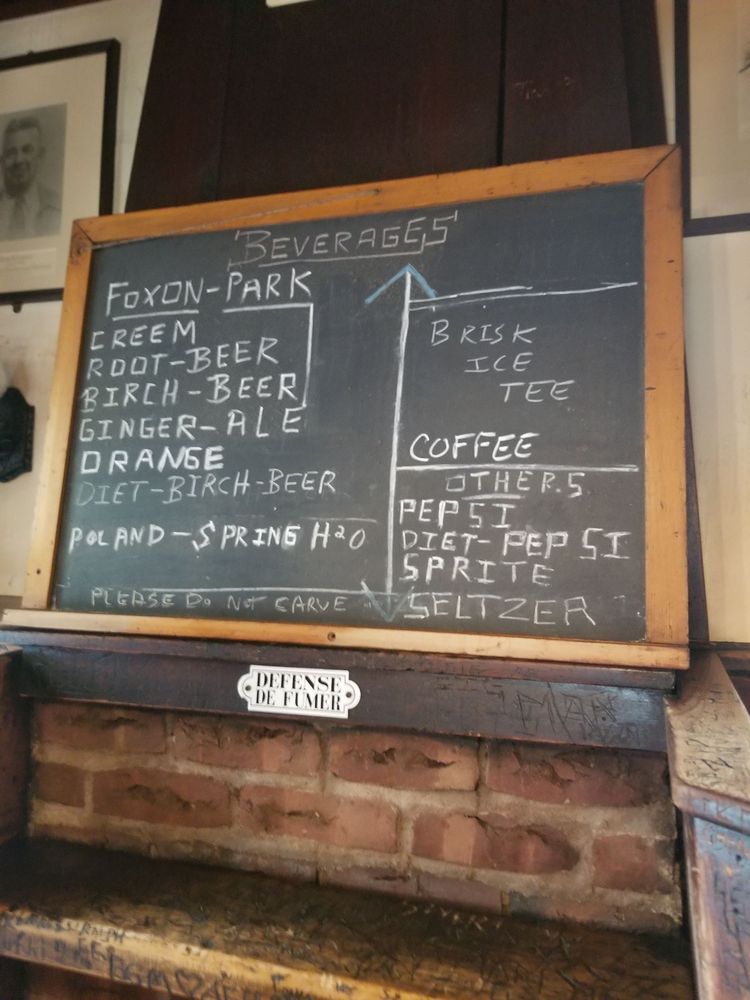 BEVERAGES
FOXON-PARK
CREEM
ROOT-BEER
BIRCH-BEER
GINGER-ALE
ORANGE
DIET-BIRCH-BEER
POLAND-SPRING H2O
PLEASE DO NOT CARVE
BRISK
ICE
TEE
COFFEE
OTHERS
PEPSI
DIET-PEPSI
SPRITE
SELTZER
DEFENSE
DE FUMER